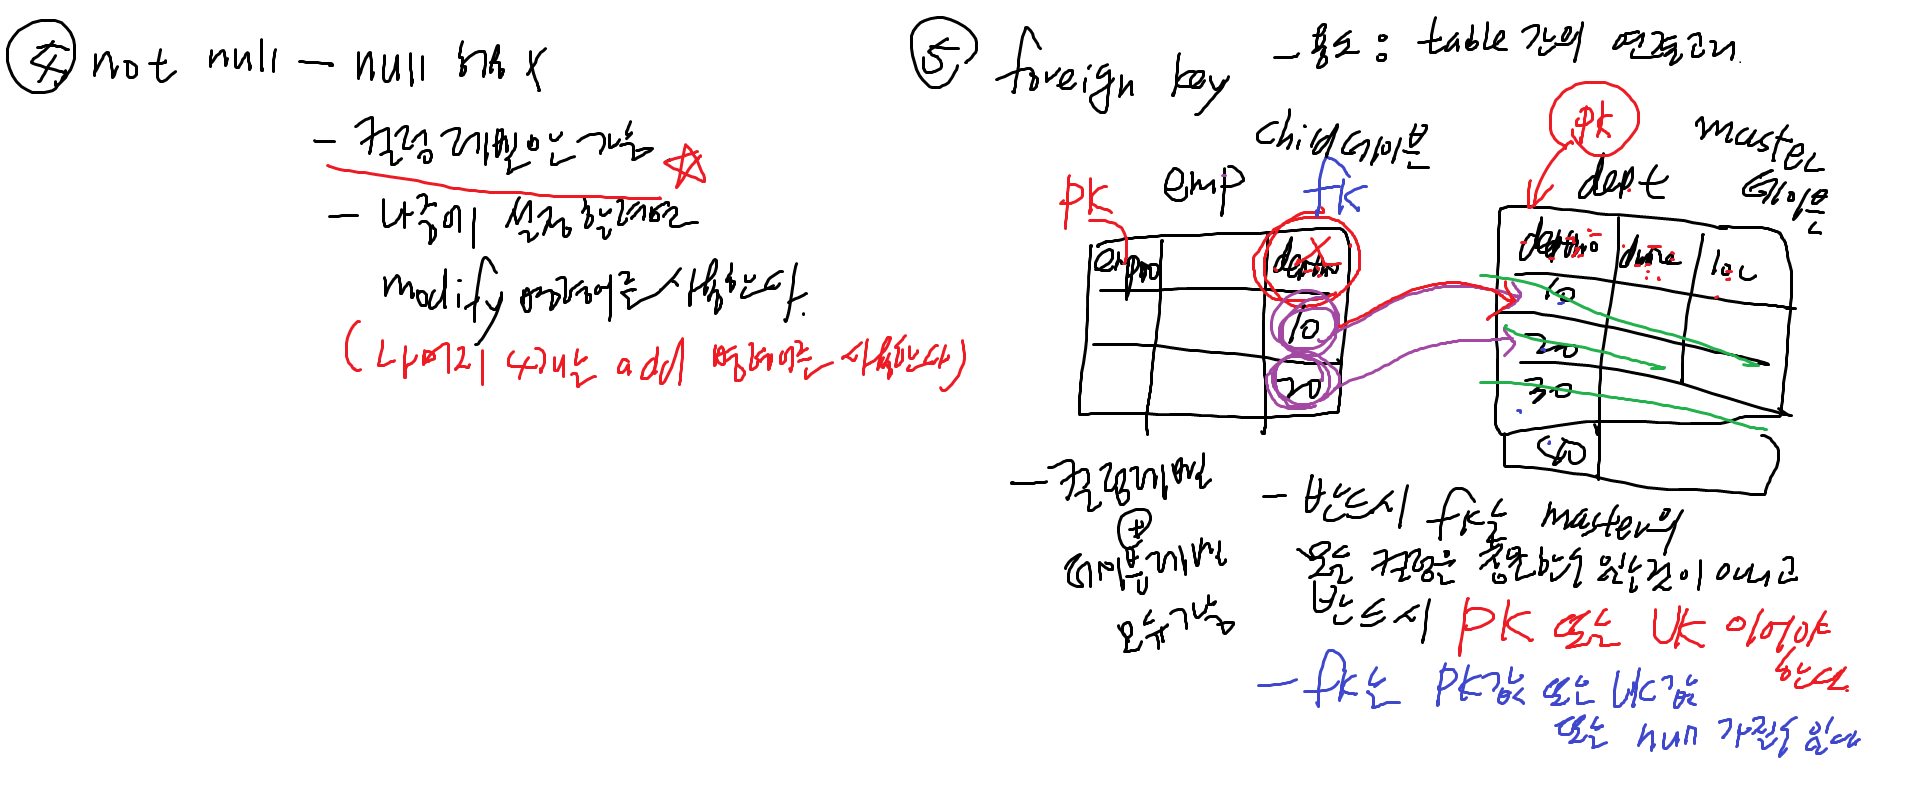 ④ not null - null 허용 X
- 컬럼 레벨만 가능
- 나중에 설정할려면
modify 명령어를 사용한다.
(나머지 4개는 add 명령어를 사용한다)
⑤ foreign key - 용도 : table 간의 연결고리.
child 테이블
pk emp fk
empno deptno
X
10
20
pk
master
테이블
dept
deptno dname loc
10
20
30
40
- 컬럼레벨
+
테이블레벨
모두가능
- 반드시 fk는 master의
모든 컬럼을 참조할수 있는것이 아니고
반드시 PK 또는 UK 이어야
한다.
- fk는 PK값 또는 UK값
또는 null 가질수 있다